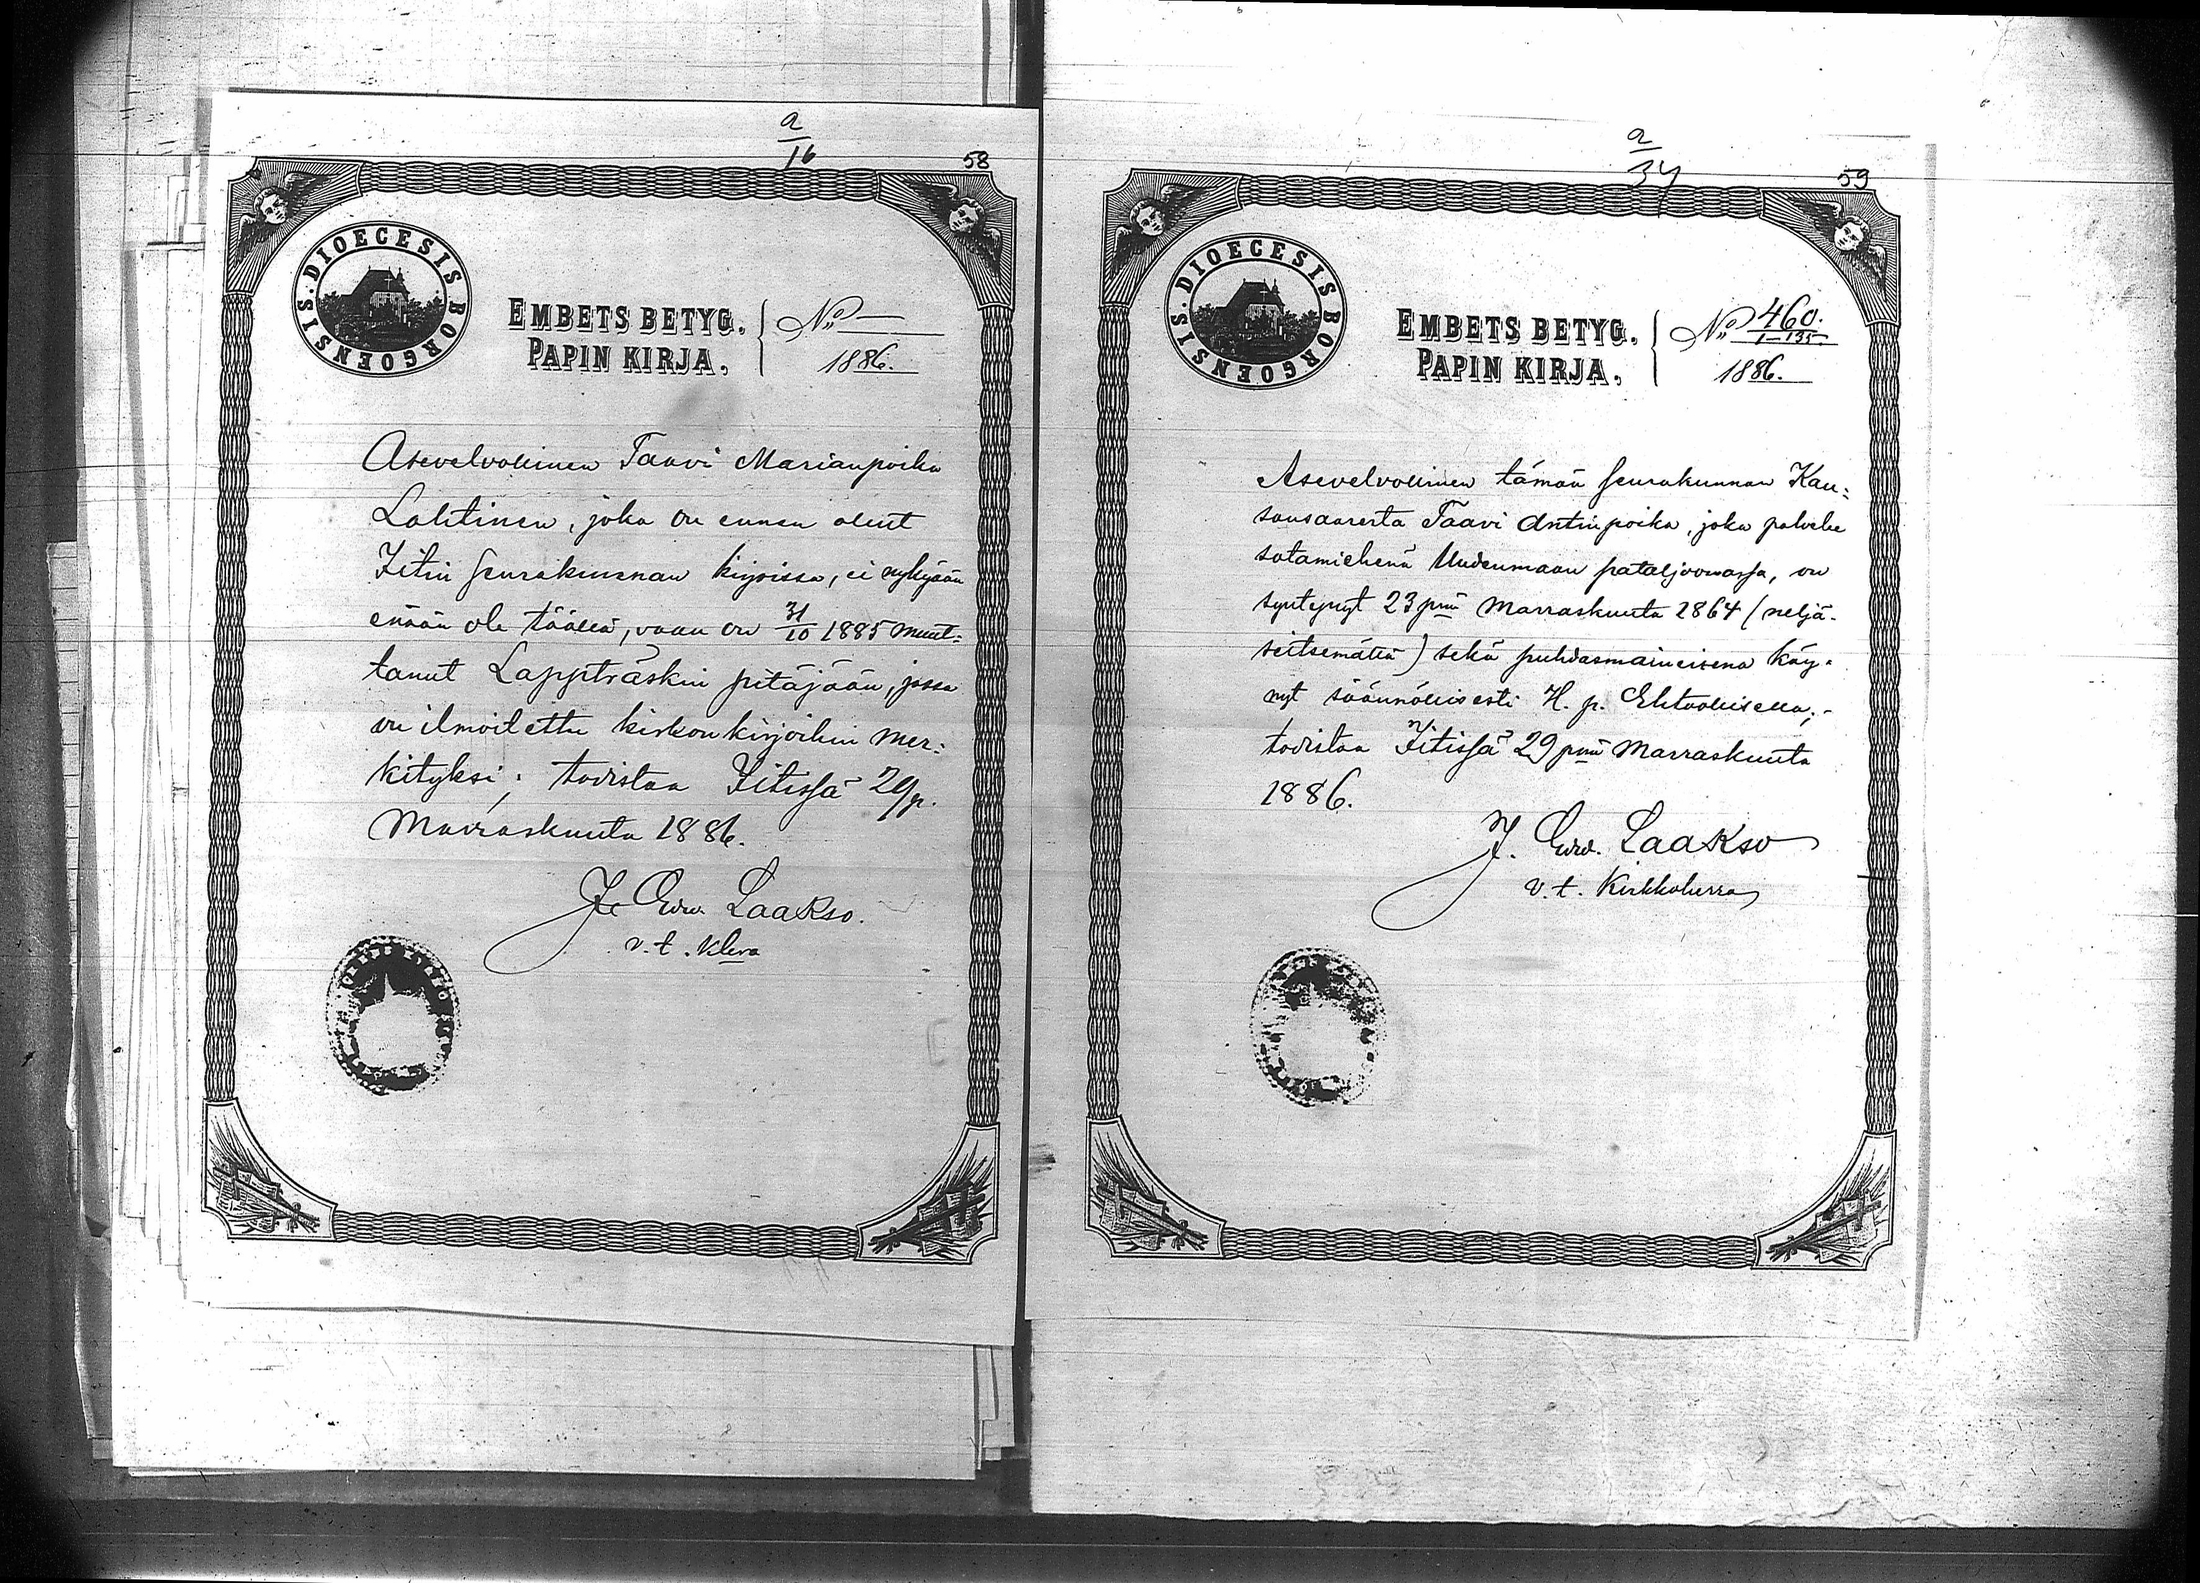 a/16
58
DIOECESIS BORGOENSIS.
EMBETS BETYG.
PAPIN KIRJA.
No —
1886.
Asevelvollinen Taavi Marianpoika
Lahtinen, joka on ennen ollut
Iitin seurakunnan kirjoissa, ei nykyään
enään ole täällä, vaan on 31/10 1885 muut=
tanut Lappträskin pitäjään, jossa
on ilmoitettu kirkonkirjoihin mer=
kityksi; todistaa Iitissä 29 p.
Marraskuuta 1886.
J. Edw. Laakso.
v.t. Khra
a/34
59
DIOECESIS BORGOENSIS.
EMBETS BETYG.
PAPIN KIRJA.
No 460.
I–135.
1886.
Asevelvollinen tämän seurakunnan Kau=
sansaaresta Taavi Antinpoika, joka palvelee
sotamiehenä Uudenmaan pataljoonassa, on
syntynyt 23 p:nä Marraskuuta 1864 (neljä-
seitsemättä) sekä puhdasmaineisena käy-
nyt säännöllisesti H. p. Ehtoollisella;-
todistaa Iitissä 29 p:nä Marraskuuta
1886.
J. Edw. Laakso
v.t. Kirkkoherra